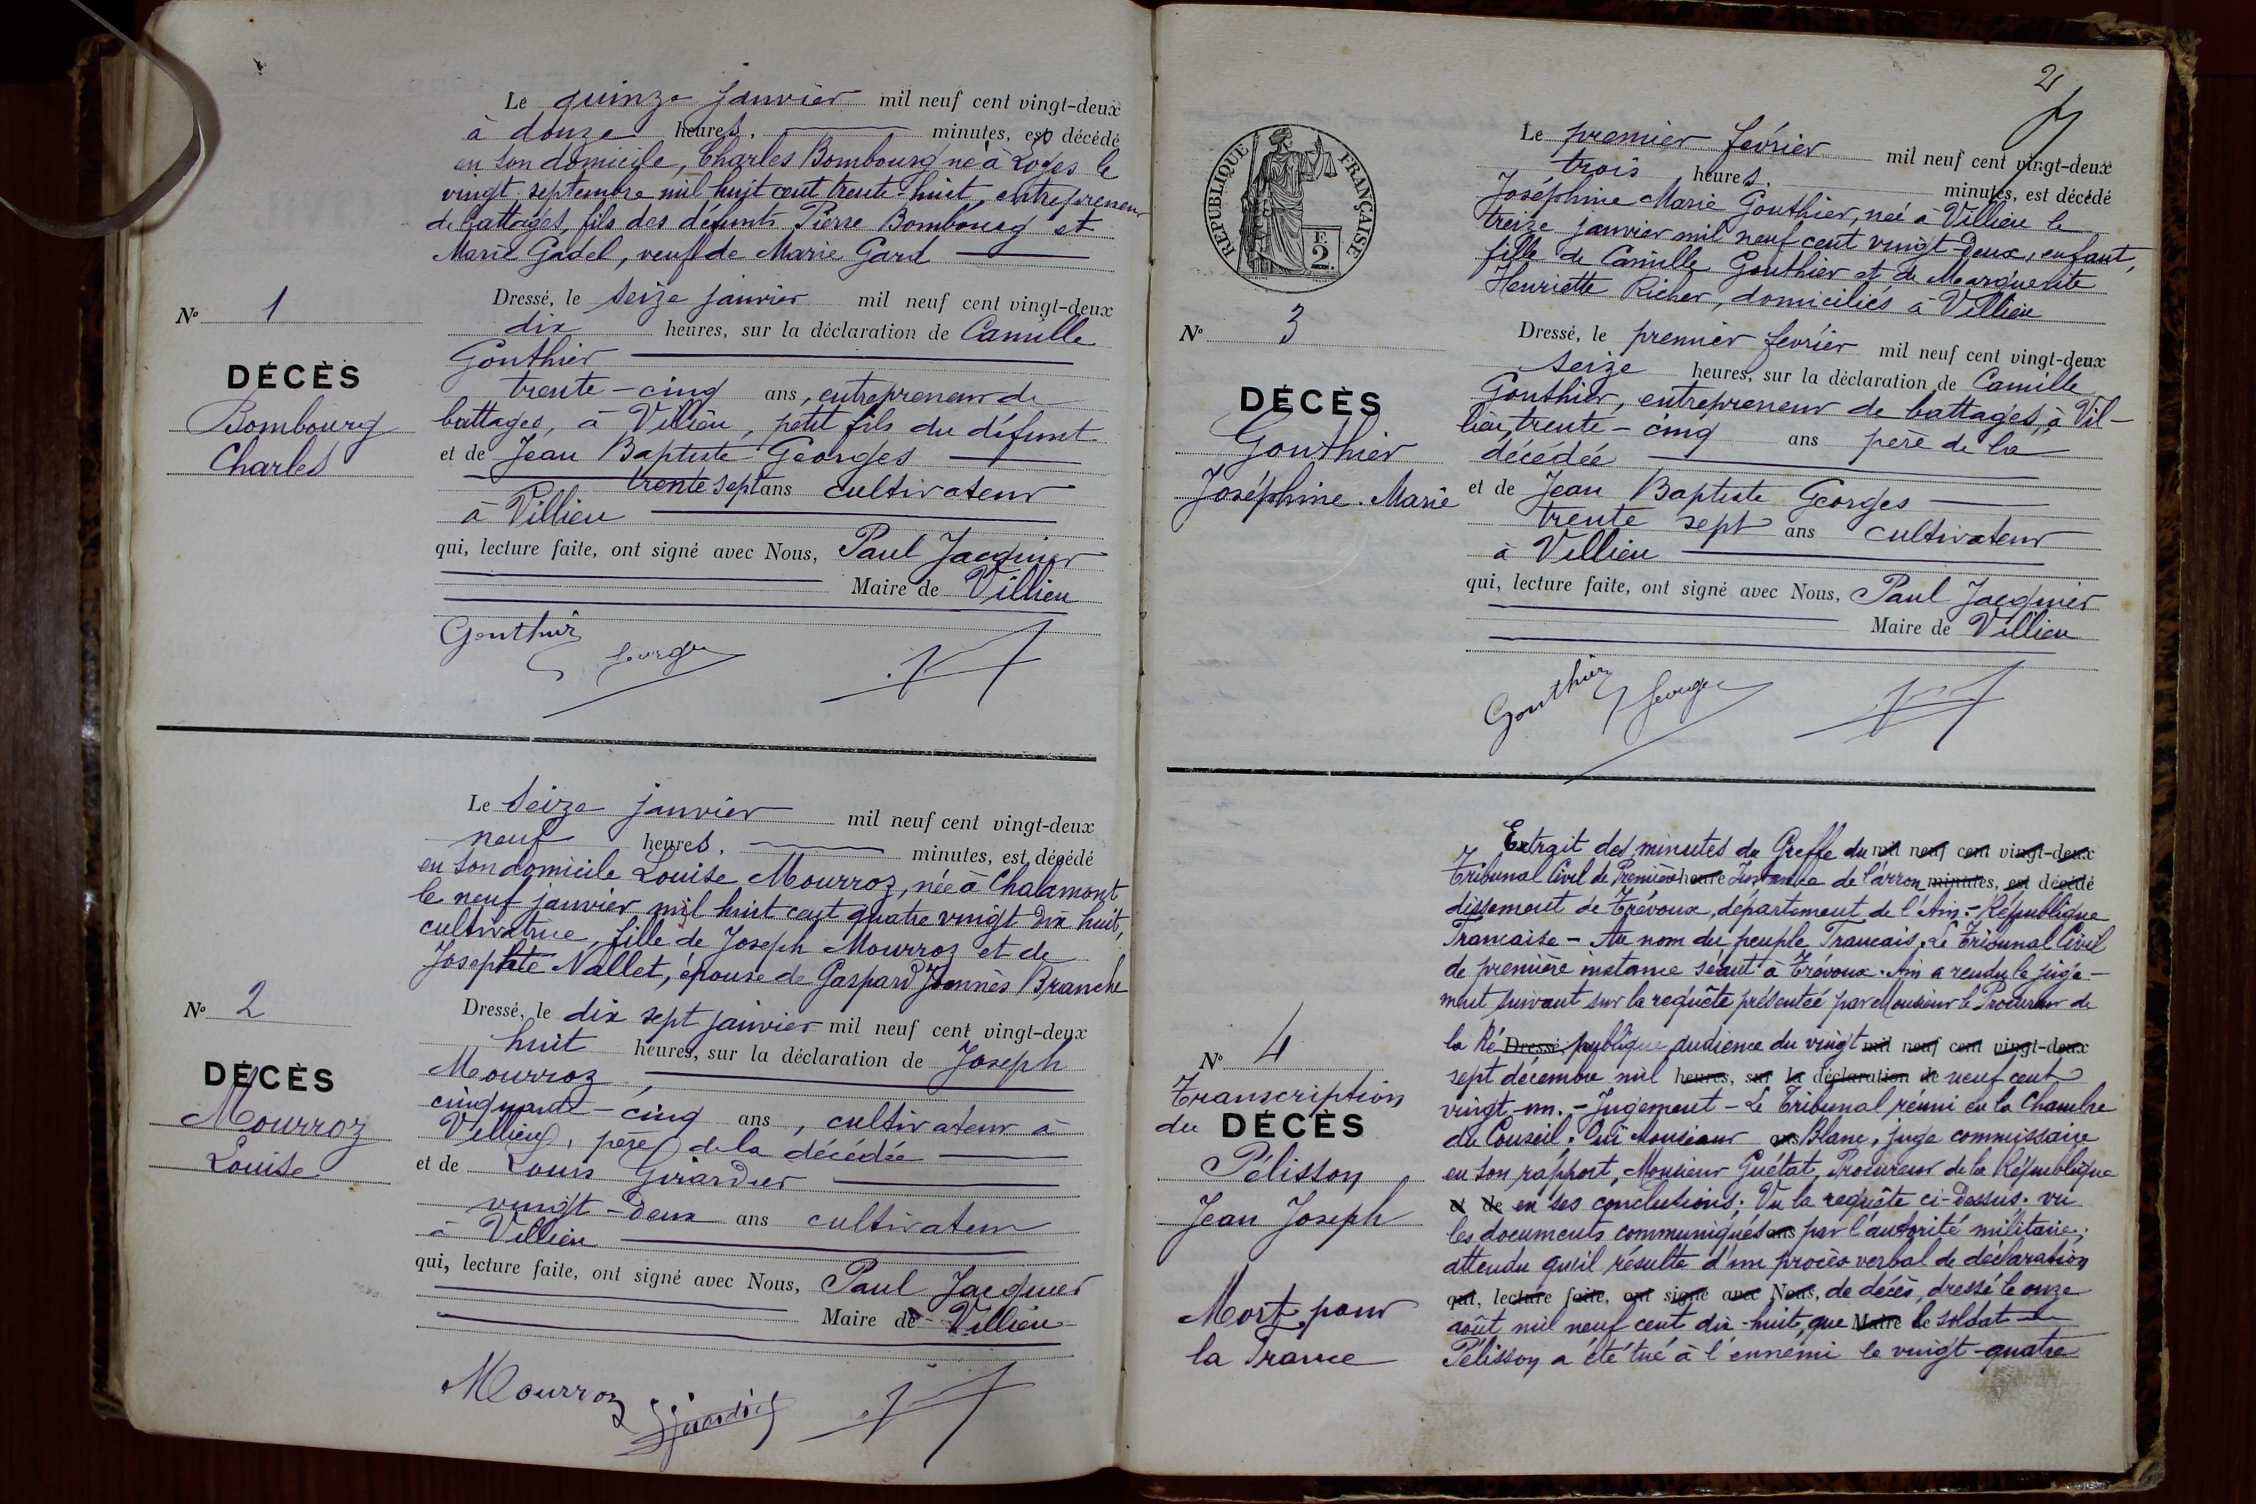 Le quinze janvier mil neuf cent vingt-deux
à douze heures, minutes, est décédé
en son domicile, Charles Bombourg né à Loyes le
vingt septembre mil huit cent trente huit, entrepreneur
de battages, fils des défunts Pierre Bombourg et
Marie Gadel, veuf de Marie Gard
N° 1
DÉCÈS
Bombourg
Charles
Dressé, le seize janvier mil neuf cent vingt-deux
dix heures, sur la déclaration de Camille
Gouthier
trente-cinq ans, entrepreneur de
battages, à Villieu, petit fils du défunt
et de Jean Baptiste Georges
trente sept ans cultivateur
à Villieu
qui, lecture faite, ont signé avec Nous, Paul Jacquier
Maire de Villieu
Gouthier Georges
Le seize janvier mil neuf cent vingt-deux
neuf heures, minutes, est décédé
en son domicile Louise Mourroz, née à Chalamont
le neuf janvier mil huit cent quatre vingt dix huit,
cultivatrice, fille de Joseph Mourroz et de
Josephte Nallet, épouse de Gaspard Joannès Branche
N° 2
DÉCÈS
Mourroz
Louise
Dressé, le dix sept janvier mil neuf cent vingt-deux
huit heures, sur la déclaration de Joseph
Mourroz
cinquante-cinq ans, cultivateur à
Villieu, père de la décédée
et de Louis Girardier
vingt-deux ans cultivateur
à Villieu
qui, lecture faite, ont signé avec Nous, Paul Jacquier
Maire de Villieu
Mourroz Girardier
2
RÉPUBLIQUE FRANÇAISE
F.
2.
Le premier février mil neuf cent vingt-deux
trois heures, minutes, est décédé
Joséphine Marie Gouthier, née à Villieu le
treize janvier mil neuf cent vingt-deux, enfant,
fille de Camille Gouthier et de Marguerite
Henriette Richer, domiciliés à Villieu
N° 3
DÉCÈS
Gouthier
Joséphine-Marie
Dressé, le premier février mil neuf cent vingt-deux
seize heures, sur la déclaration de Camille
Gouthier, entrepreneur de battages, à Vil-
lieu, trente-cinq ans père de la
décédée
et de Jean Baptiste Georges
trente sept ans cultivateur
à Villieu
qui, lecture faite, ont signé avec Nous, Paul Jacquier
Maire de Villieu
Gouthier Georges
N° 4
Transcription
du DÉCÈS
Pélisson
Jean Joseph
Mort pour
la France
Extrait des minutes du Greffe du mil neuf cent vingt-deux
Tribunal Civil de Première heure Instance de l'arron minutes, est décédé
dissement de Trévoux, département de l'Ain.- République
Francaise - Au nom du peuple Francais, Le Tribunal Civil
de première instance séant à Trévoux. Ain a rendu le juge-
ment suivant sur la requête présentée par Monsieur le Procureur de
la Ré Dressé, publique audience du vingt mil neuf cent vingt-deux
sept décembre mil heures, sur la déclaration de neuf cent
vingt-un. - Jugement - Le Tribunal réuni en la Chambre
du Conseil; Ouï Monsieur ans Blanc, juge commissaire
en son rapport, Monsieur Guétat, Procureur de la République
et de en ses conclusions; Vu la requête ci-dessus. vu
les documents communiqués ans par l'autorité militaire;
attendu qu'il résulte d'un procès verbal de déclaration
qui, lecture faite, ont signé avec Nous, de décès, dressé le onze
août mil neuf cent dix-huit, que Maire de le soldat
Pélisson a été tué à l'ennemi le vingt-quatre